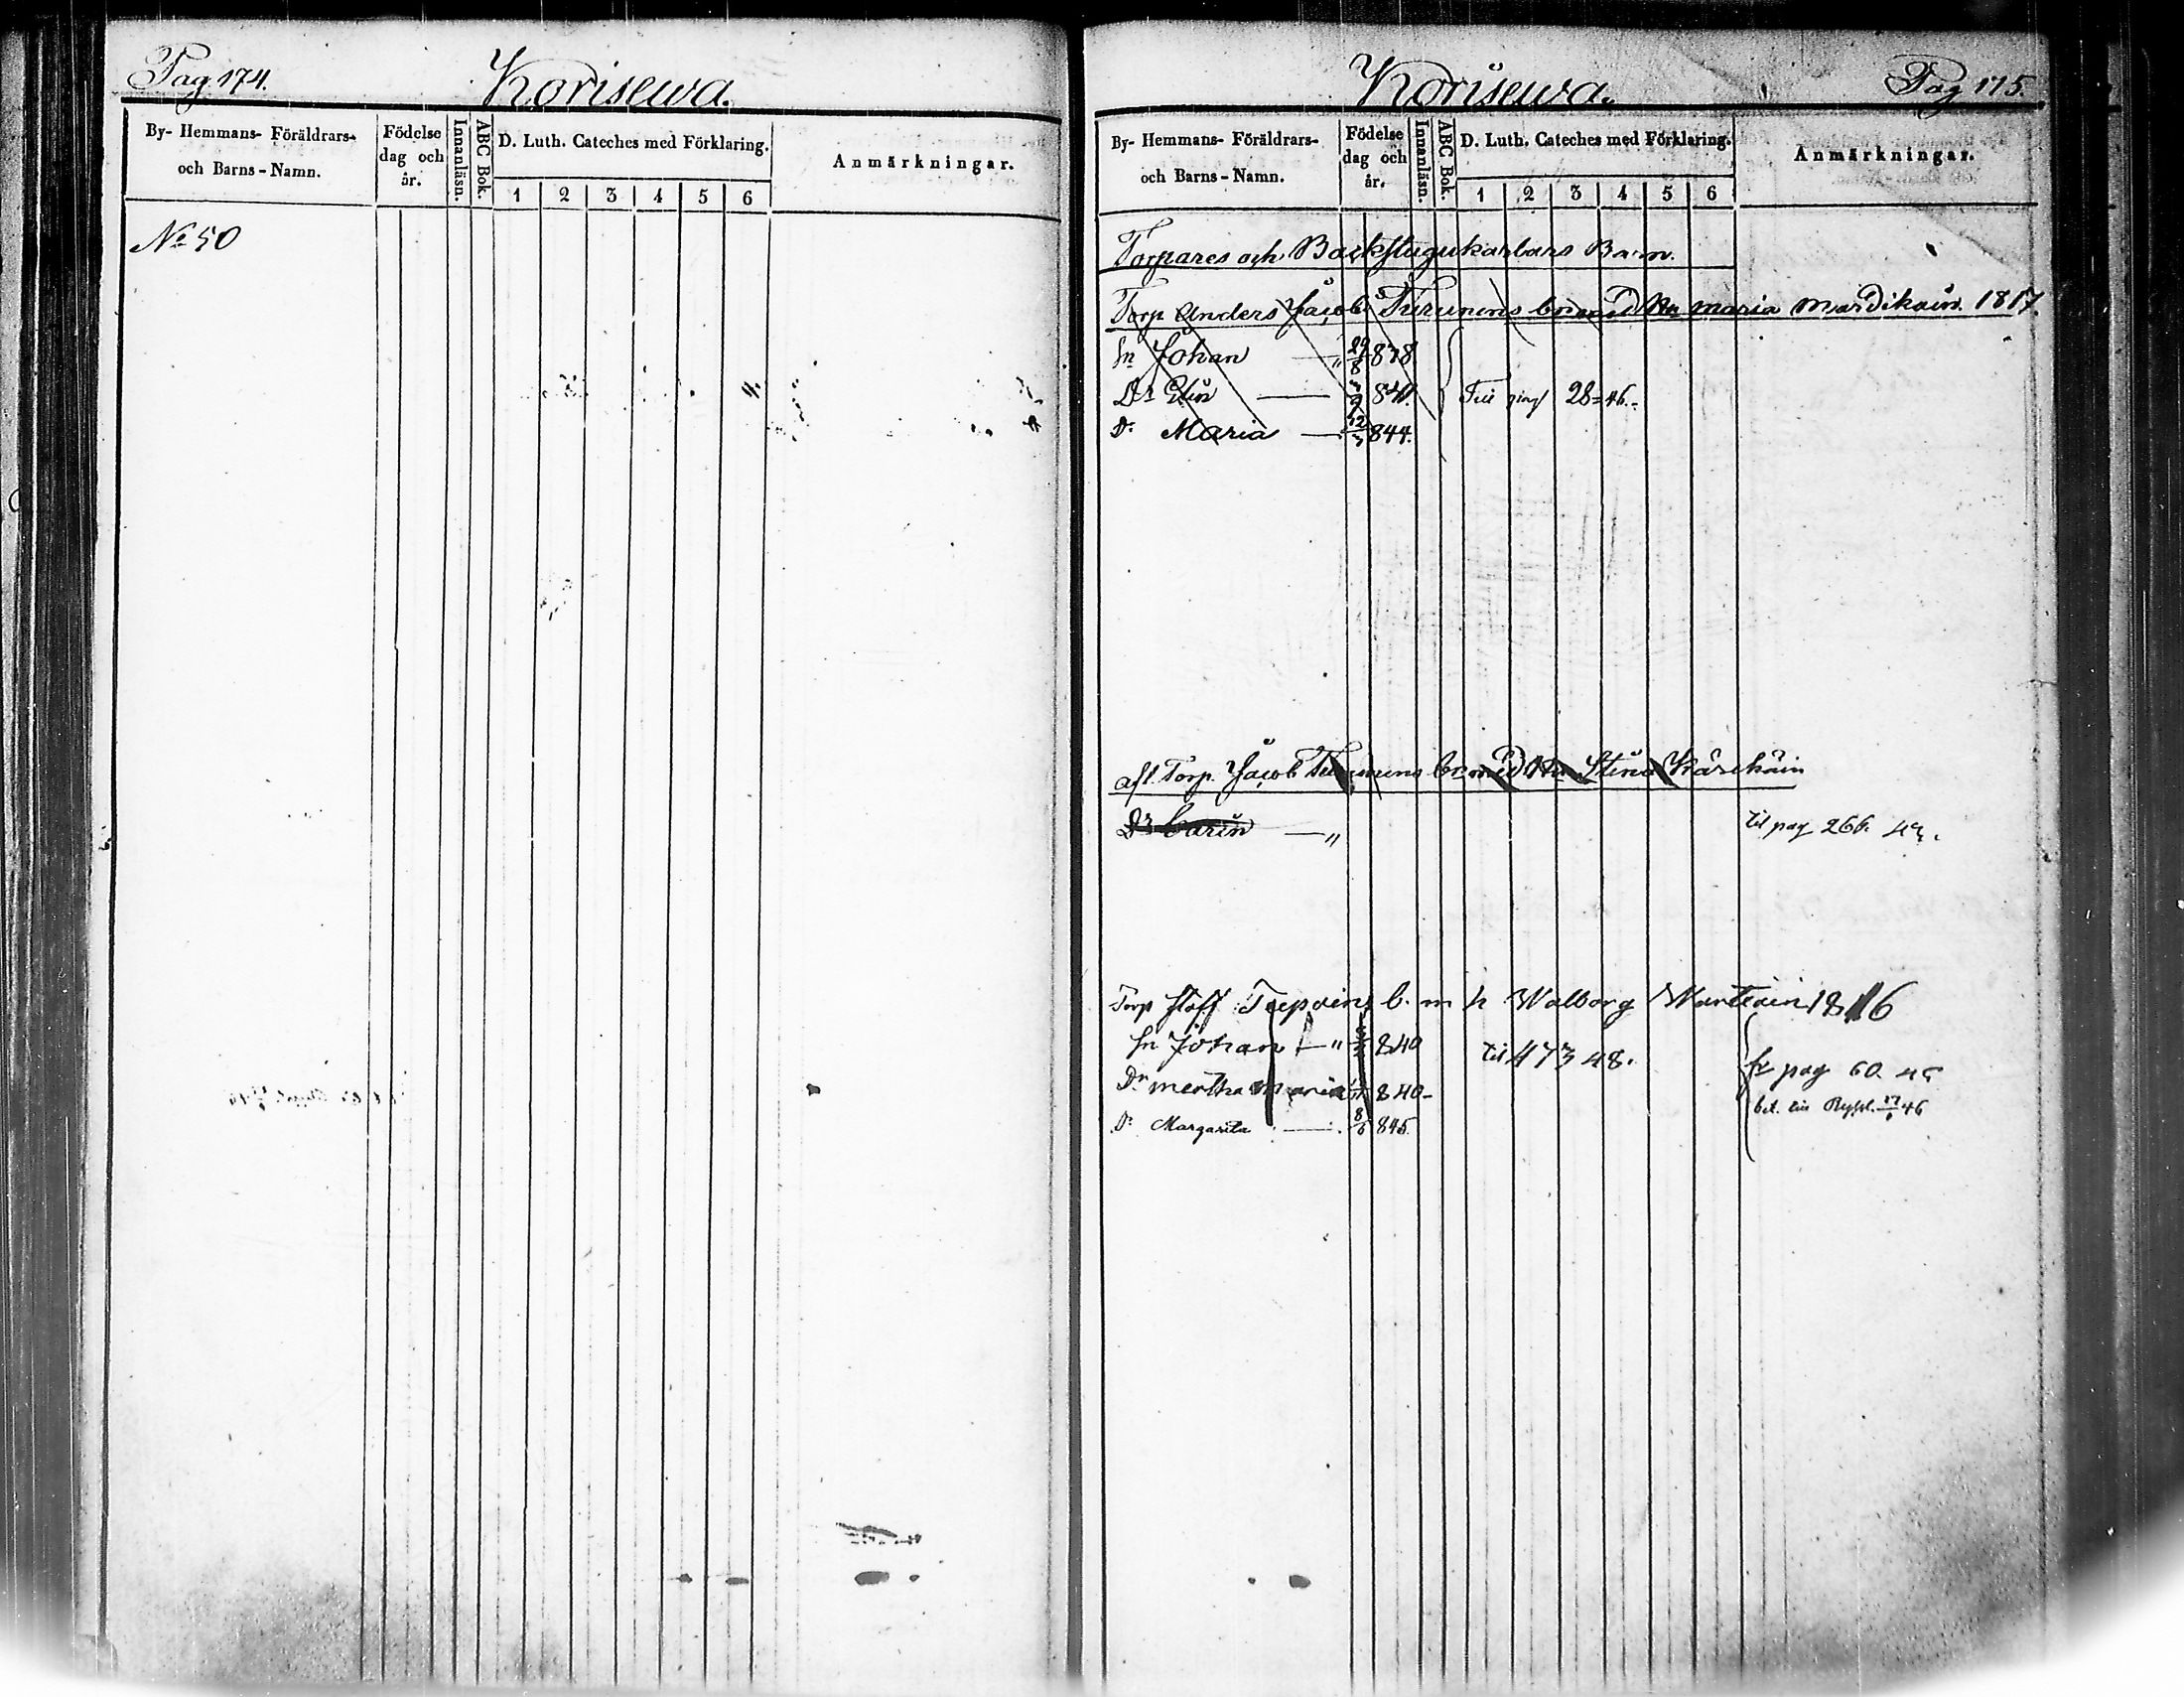 Pag 174.
Korisewa.
By- Hemmans- Föräldrars-
och Barns-Namn.
Födelse
dag och
år.
Innanläsn.
ABC Bok.
D. Luth. Cateches med Förklaring.
1 2 3 4 5 6
Anmärkningar.
No 50
Korisewa.
Pag 175.
By- Hemmans- Föräldrars-
och Barns-Namn.
Födelse
dag och
år.
Innanläsn.
ABC Bok.
D. Luth. Cateches med Förklaring.
1 2 3 4 5 6
Anmärkningar.
Torpares och Backstugukarlars Barn.
Torp Anders Jacob Turunens barn med Hu Maria Mardikain. 1817.
Sn Johan —„ 838
Dr Elin — 840.
Dr Maria — 12/3 844.
28=46.
afl. Torp. Jacob Turunens br med Hu Stina Kärekäin
Dr Carin —„
til pag 266. 43.
Torp Staff Teepoins b. m h Walborg Wartiain 1816
Sn Johan —„ 840
til 473 48.
fr pag 60. 45
Dr Mertha Maria 840-
Dr Margareta — 8/6 845.
bet. 17 46